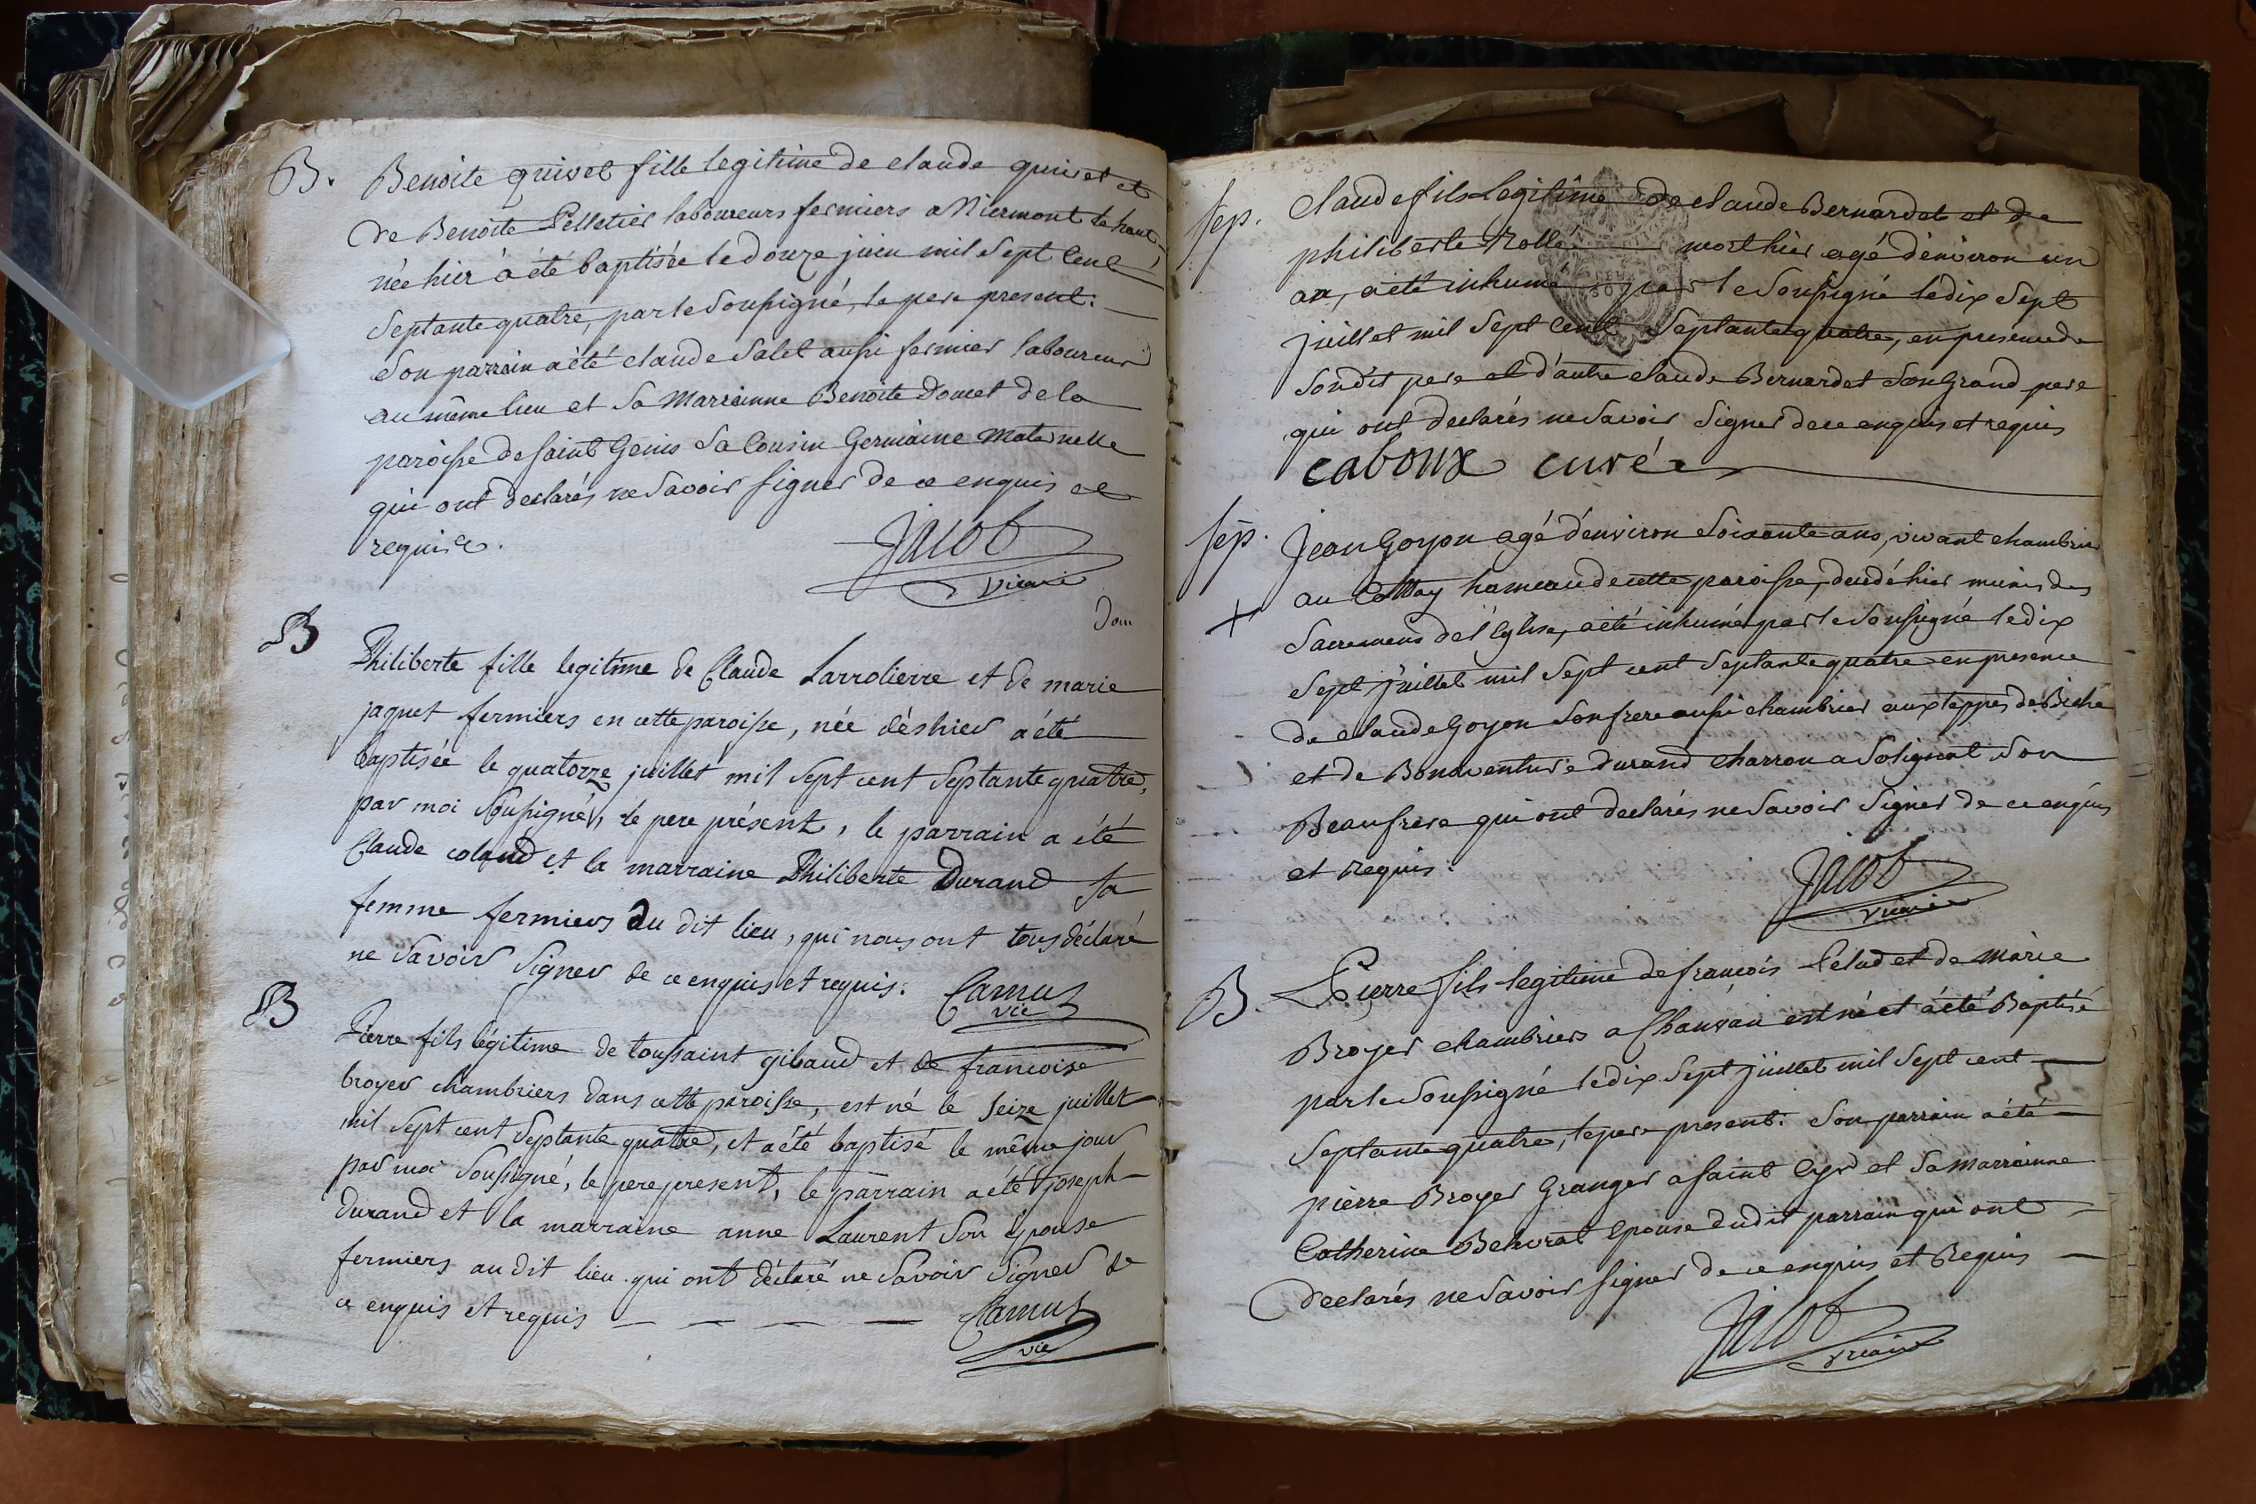 B. Benoite quivet fille legitime de claude quivet et
de Benoite Pelletier laboureurs fermiers a Niermont le haut,
née hier a été baptisée le douze juin mil sept cent
septante quatre, par le soussigné, le pere present.
Son parrain a été claude Salet aussi fermier laboureur
au même lieu et sa Marrainne Benoite Domet de la
paroisse de saint Genis sa cousin Germaine Maternelle
qui ont declarés ne savoir signer de ce enquis et
requise.
Jacob
vicaire
B
Philiberte fille legitime de Claude Larrolierre et de marie
jaquet fermiers en cette paroisse, née dès hier a été
baptisée le quatorze juillet mil sept cent septante quatre,
par moi soussigné, le pere présent, le parrain a été
Claude coland et la marraine Philiberte Durand sa
femme fermiers du dit lieu, qui nous ont tous déclaré
ne savoir signer de ce enquis et requis.
Camus
vic
B
Pierre fils légitime de toussaint gibaud et de francoise
broyer chambriers dans cette paroisse, est né le seize juillet
mil sept cent septante quatre, et a été baptisé le même jour
par moi soussigné, le pere present, le parrain a été joseph
durand et la marraine anne Laurent son épouse
fermiers au dit lieu qui ont déclaré ne savoir signer de
ce enquis et requis
Camus
vic
sep. Claude fils legitime de claude Bernardet et de
philiberte Rollé mort hier agé d'environ un
an, a été inhumé par le soussigné le dix sept
juillet mil sept cent septante quatre, en presence de
sondit pere et d'autre claude Bernardet son Grand pere
qui ont declarés ne savoir signer de ce enquis et requis
caboux curé
sep. Jean Goyon agé d'environ soixante ans, vivant chambrier
au hameau de cette paroisse, decedé hier munis des
Sacremens de l'Eglise, a été inhumé par le soussigné le dix
sept juillet mil sept cent septante quatre en presence
de claude Goyon son frere aussi chambrier aux teppes de Biche
et de Bonaventure durand charron a Solignat son
Beaufrere qui ont declarés ne savoir signer de ce enquis
et requis.
Jacob
vicaire
B. Pierre fils legitime de françois Pelud et de Marie
Broyer chambriers a Chanvan est né et a été Baptisé
par le soussigné le dix sept juillet mil sept cent
septante quatre, le pere present. Son parrain a été
pierre Broyer Granger a saint Cyr et sa marrainne
Catherine epouse dudit parrain qui ont
declarés ne savoir signer de ce enquis et Requis
Jacob
vicaire